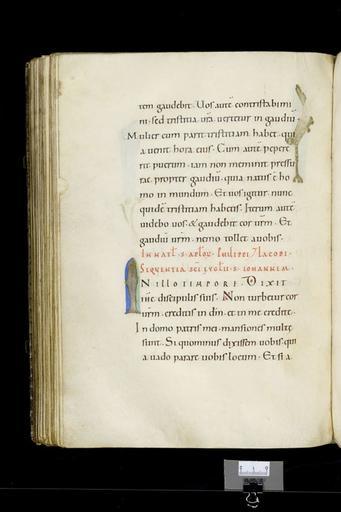 tem gaudebit. Uos autē contristabimi
ni. sed tristitia ur̄a uertetur in gaudiū.
Mulier cum parit tristitiam habet. qui
a uenit hora eius. Cum autē pepere
rit puerum. iam non meminit pressu
rae. propter gaudiū. quia natus ē ho
mo in mundum. Et uos igitur nunc
quidē tristitiam habetis. Iterum autē
uidebo uos. & gaudebit cor ur̄m. Et
gaudiū ur̄m. nemo tollet a uobis.
IN NATL̄. S. APLŌR̄. PHILIPPI. IACOBI.
SEQUENTIA SCĪ EUGLĪĪ. S. IOHANNEM.
IN ILLO TEMPORE. DIXIT
ihc̄ discipulis suis. Non turbetur cor
ur̄m. creditis in dm̄. et in me credite.
In domo patris mei. mansiones multę
sunt. Si quominus dixissem uobis. qui
a uado parare uobis locum. Et si a